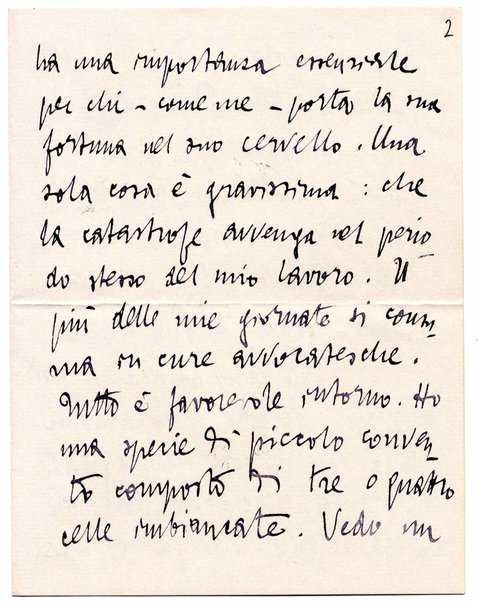 2
ha una importanza essenziale
per chi – come me – porta la sua
fortuna nel suo cervello. Una
sola cosa è gravissima: che
la catastrofe avvenga nel perio
do stesso del mio lavoro. Il
più delle mie giornate si consu
ma in cure avvocatesche.
Tutto è favorevole intorno. Ho
una specie di piccolo conven
to composto di tre o quattro
celle imbiancate. Vedo un